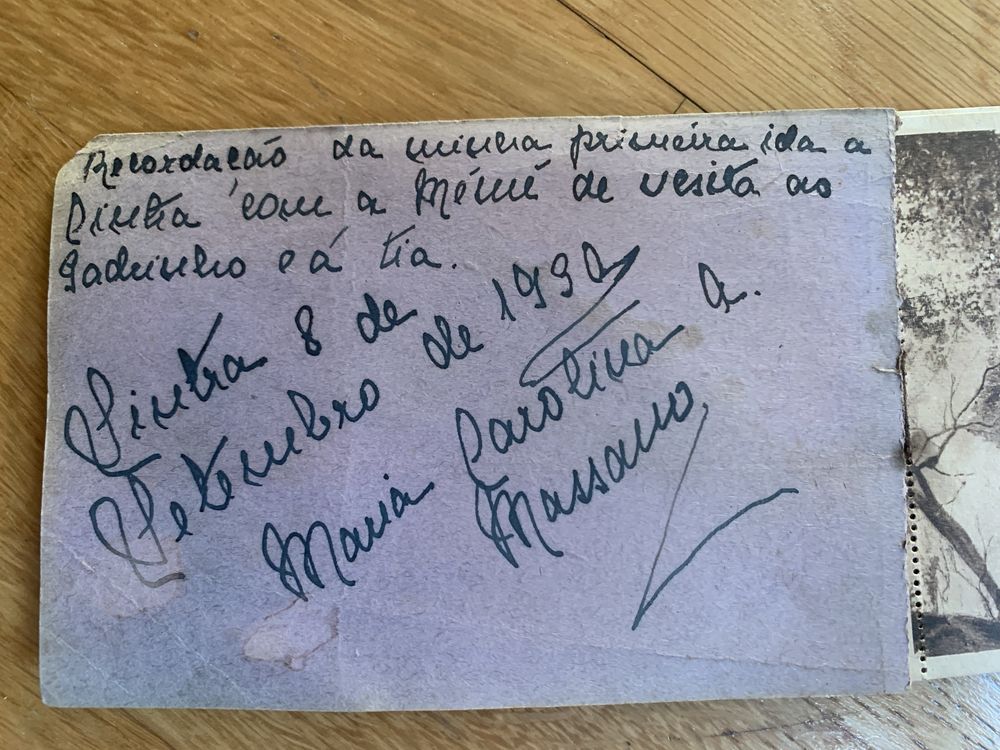 Recordação da minha primeira ida a
Sintra com a Mémé de vesita ao
Padrinho e á tia.
Sintra 8 de
Setembro de 1930
Maria Carolina A.
Massano